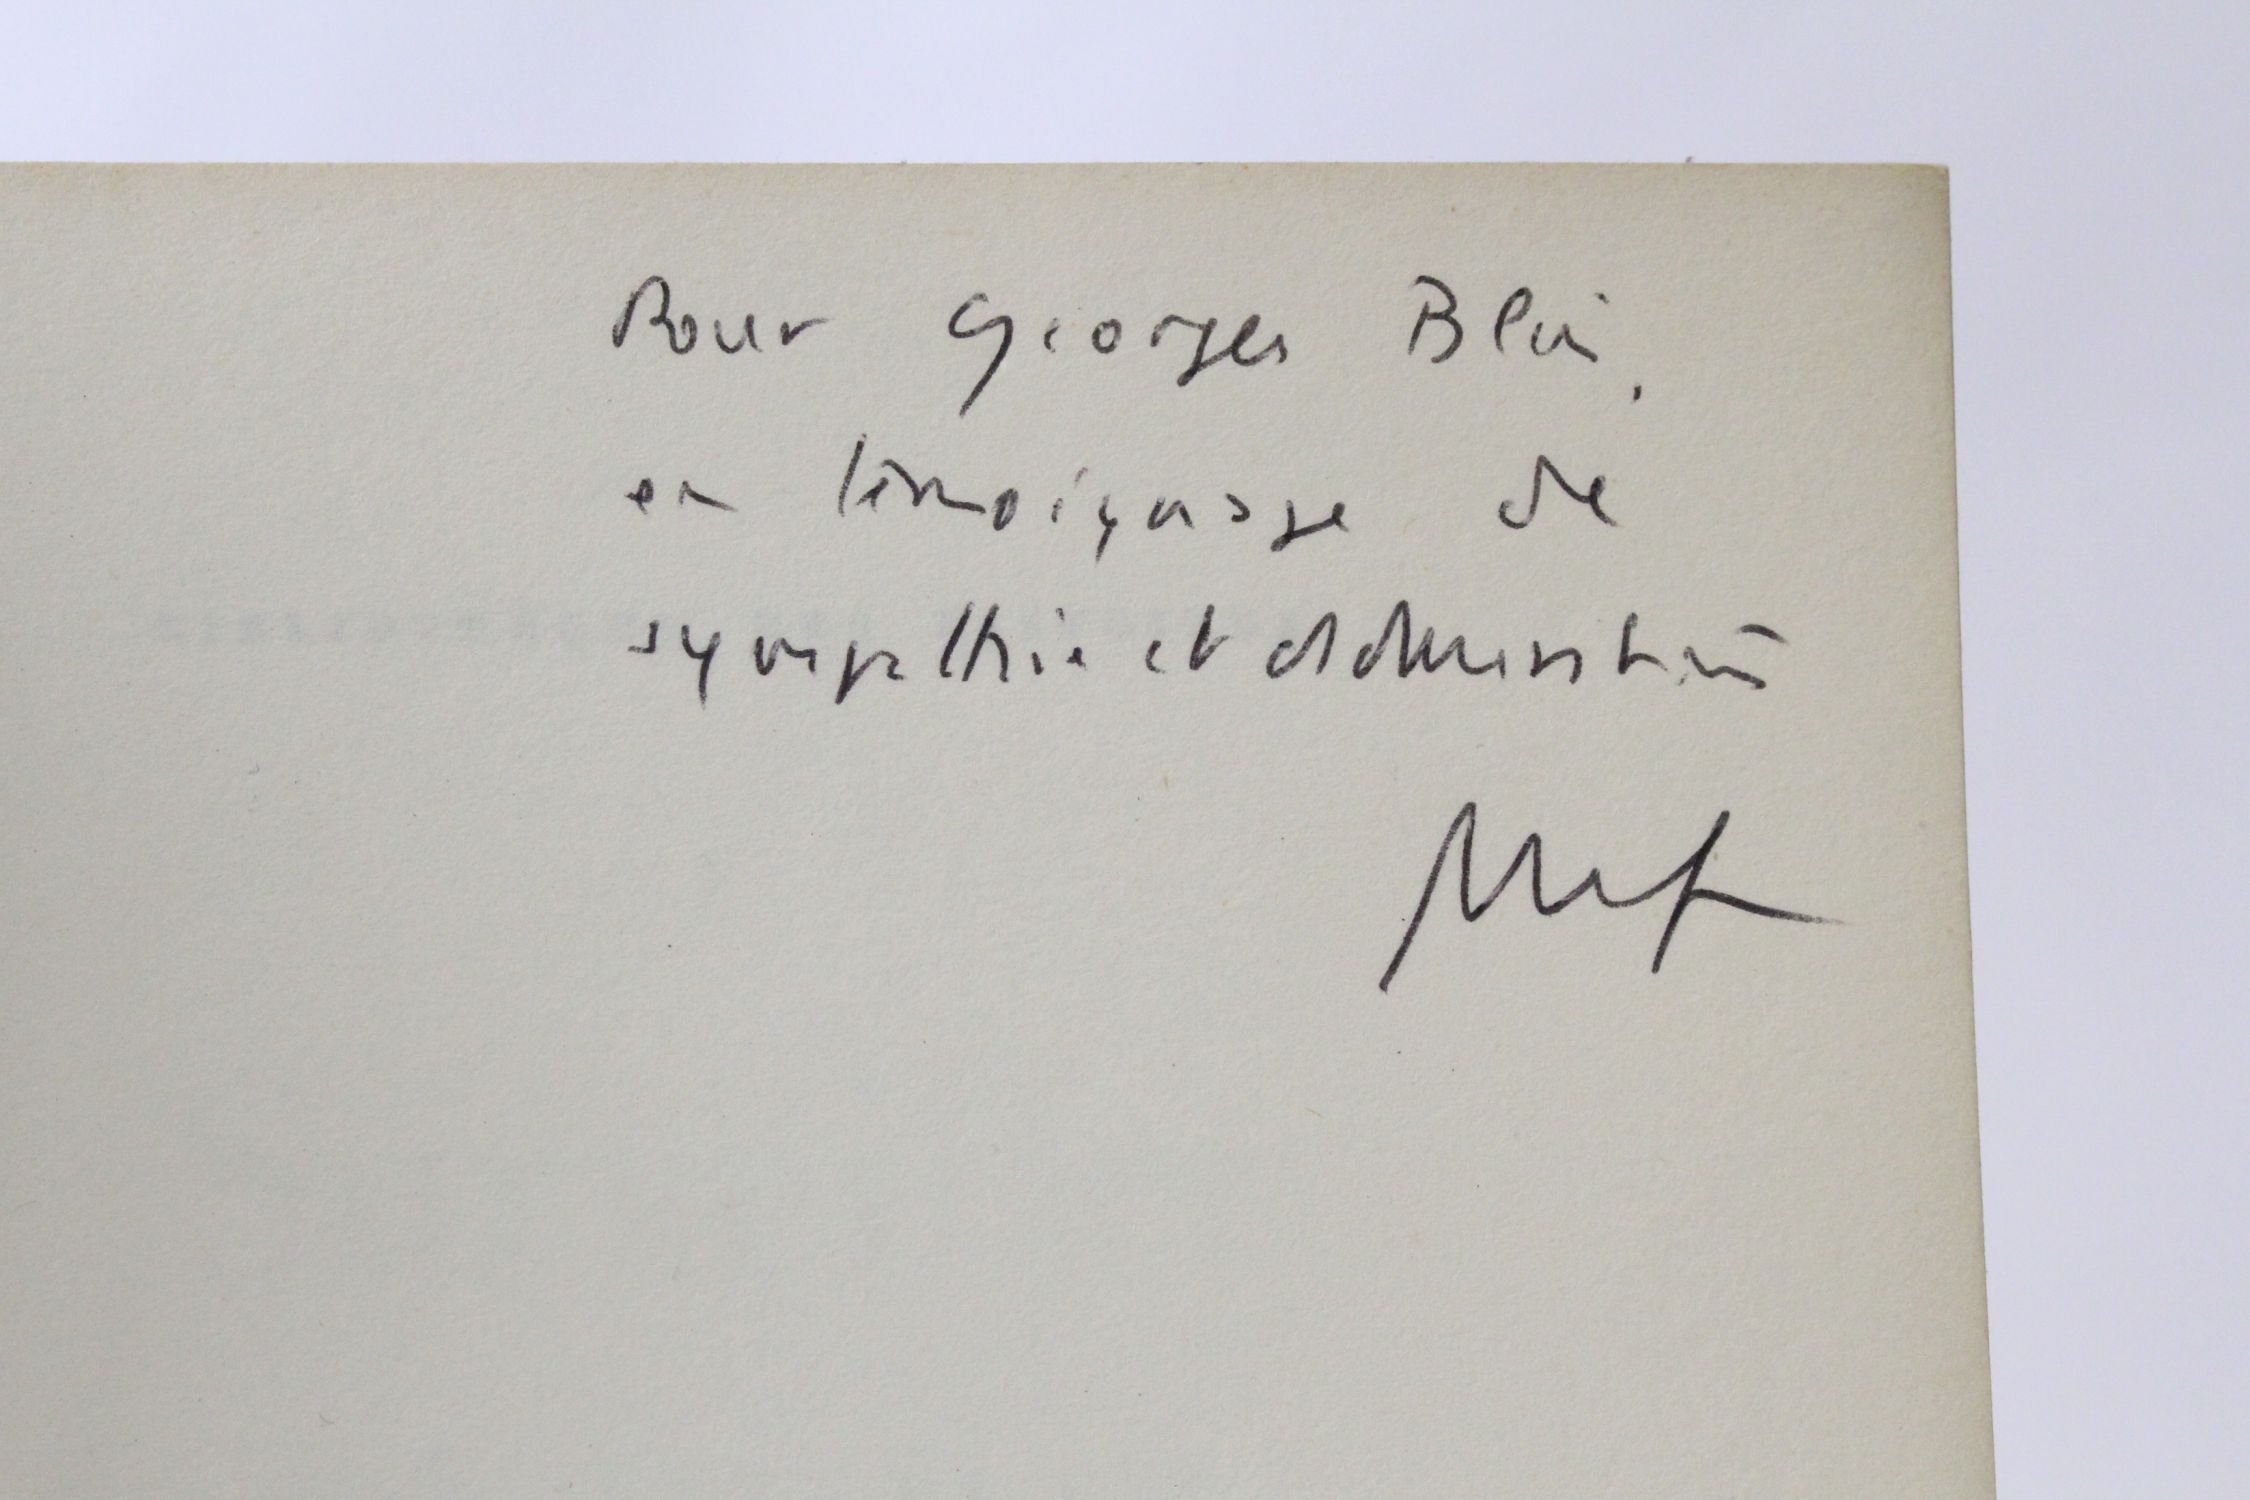 Pour Georges Blin,
en témoignage de
sympathie et d'admiration